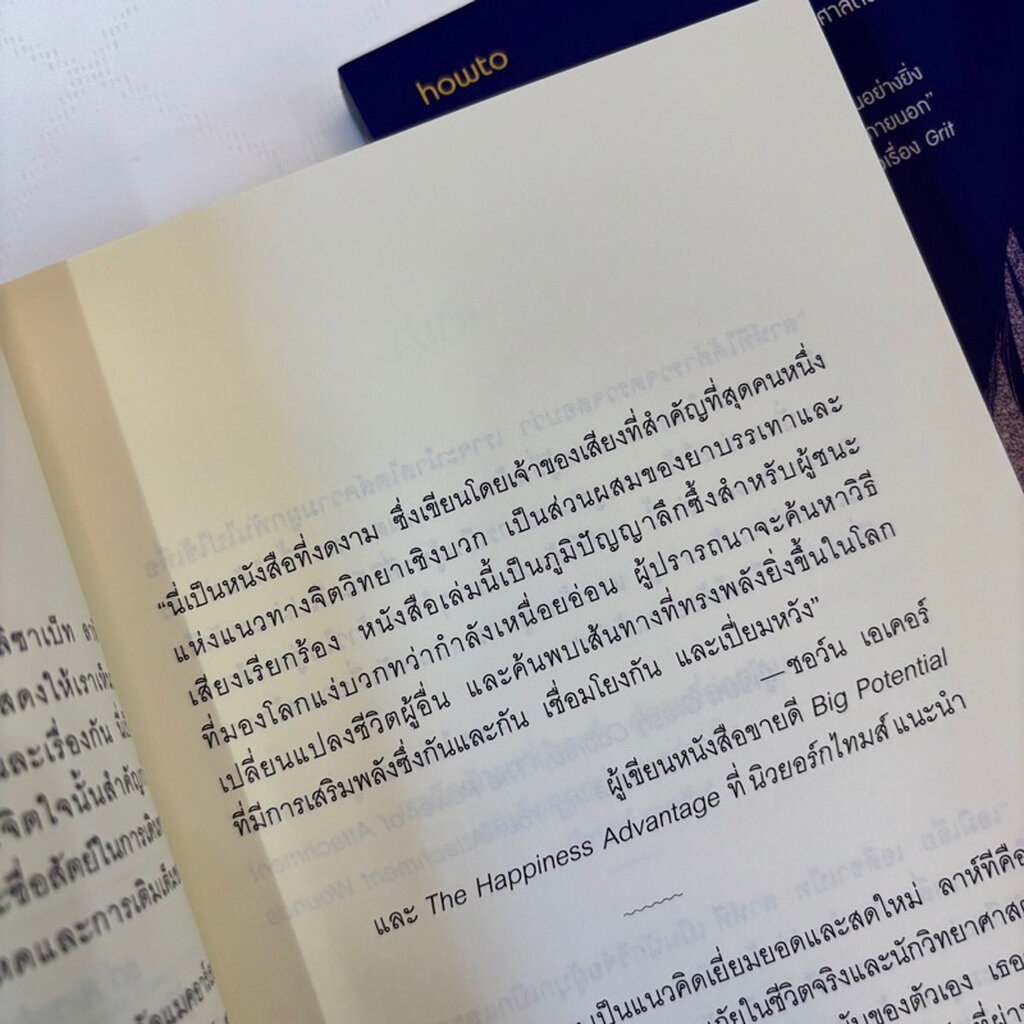 howto
"นี่เป็นหนังสือที่งดงาม ซึ่งเขียนโดยเจ้าของเสียงที่สำคัญที่สุดคนหนึ่ง
แห่งแนวทางจิตวิทยาเชิงบวก เป็นส่วนผสมของยาบรรเทาและ
เสียงเรียกร้อง หนังสือเล่มนี้เป็นภูมิปัญญาลึกซึ้งสำหรับผู้ชนะ
ที่มองโลกแง่บวกทว่ากำลังเหนื่อยอ่อน ผู้ปรารถนาจะค้นหาวิธี
เปลี่ยนแปลงชีวิตผู้อื่น และค้นพบเส้นทางที่ทรงพลังยิ่งขึ้นในโลก
ที่มีการเสริมพลังซึ่งกันและกัน เชื่อมโยงกัน และเปี่ยมหวัง"
— ชอว์น เอเคอร์
ผู้เขียนหนังสือขายดี Big Potential
และ The Happiness Advantage ที่ นิวยอร์กไทมส์ แนะนำ
เป็นแนวคิดเยี่ยมยอดและสดใหม่ ลาห์ทีคือ
ในชีวิตจริงและนักวิทยาศาสต
ของตัวเอง เธอ
ลิซาเบ็ท
สดงให้เราเห็น
และเรื่องกัน
จิตใจนั้นสำคัญ
ซื่อสัตย์ในการเดิน
และการเติมเต็ม
นอย่างยิ่ง
ภายนอก"
เรื่อง Grit